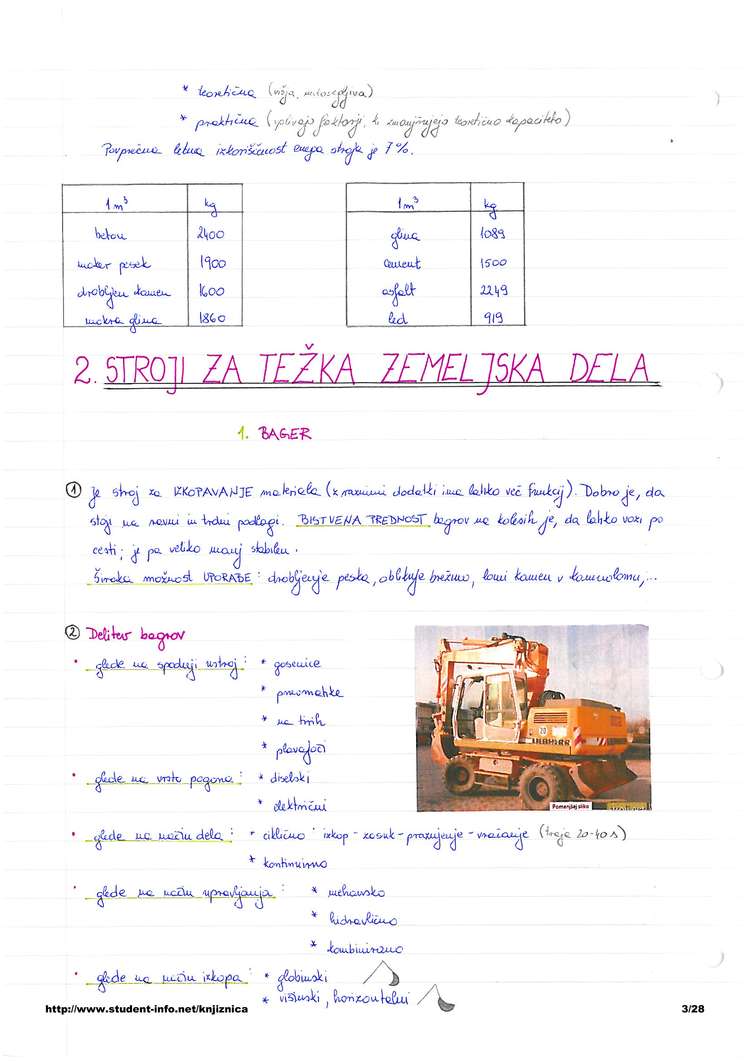 * teoretična (višja, nedosegljiva)
* praktična (vplivajo faktorji, ki zmanjšujejo teoretično kapaciteto)
Povprečna letna izkoriščenost enega stroja je 7%.
1 m³ kg
beton 2400
moker pesek 1900
drobljen kamen 1600
mokra glina 1860
1 m³ kg
glina 1089
cement 1500
asfalt 2249
led 919
2. STROJI ZA TEŽKA ZEMELJSKA DELA
1. BAGER
① Je stroj za IZKOPAVANJE materiala (z raznimi dodatki ima lahko več funkcij). Dobro je, da
stoji na ravni in trdni podlagi. BISTVENA PREDNOST bagrov na kolesih je, da lahko vozi po
cesti; je pa veliko manj stabilen.
Široka možnost UPORABE: drobljenje peska, oblikuje brežino, lomi kamen v kamnolomu,...
② Delitev bagrov
• glede na spodnji ustroj: * gosenice
* pnevmatike
* na tirih
* plavajoči
• glede na vrsto pogona: * diselski
* električni
• glede na način dela: * ciklično: izkop - zasuk - praznjenje - vračanje (traja 20-40 s)
* kontinuirno
• glede na način upravljanja: * mehansko
* hidravlično
* kombinirano
• glede na način izkopa: * globinski
* višinski, horizontalni
LIEBHERR
Pomanjšaj sliko
http://www.student-info.net/knjiznica
3/28